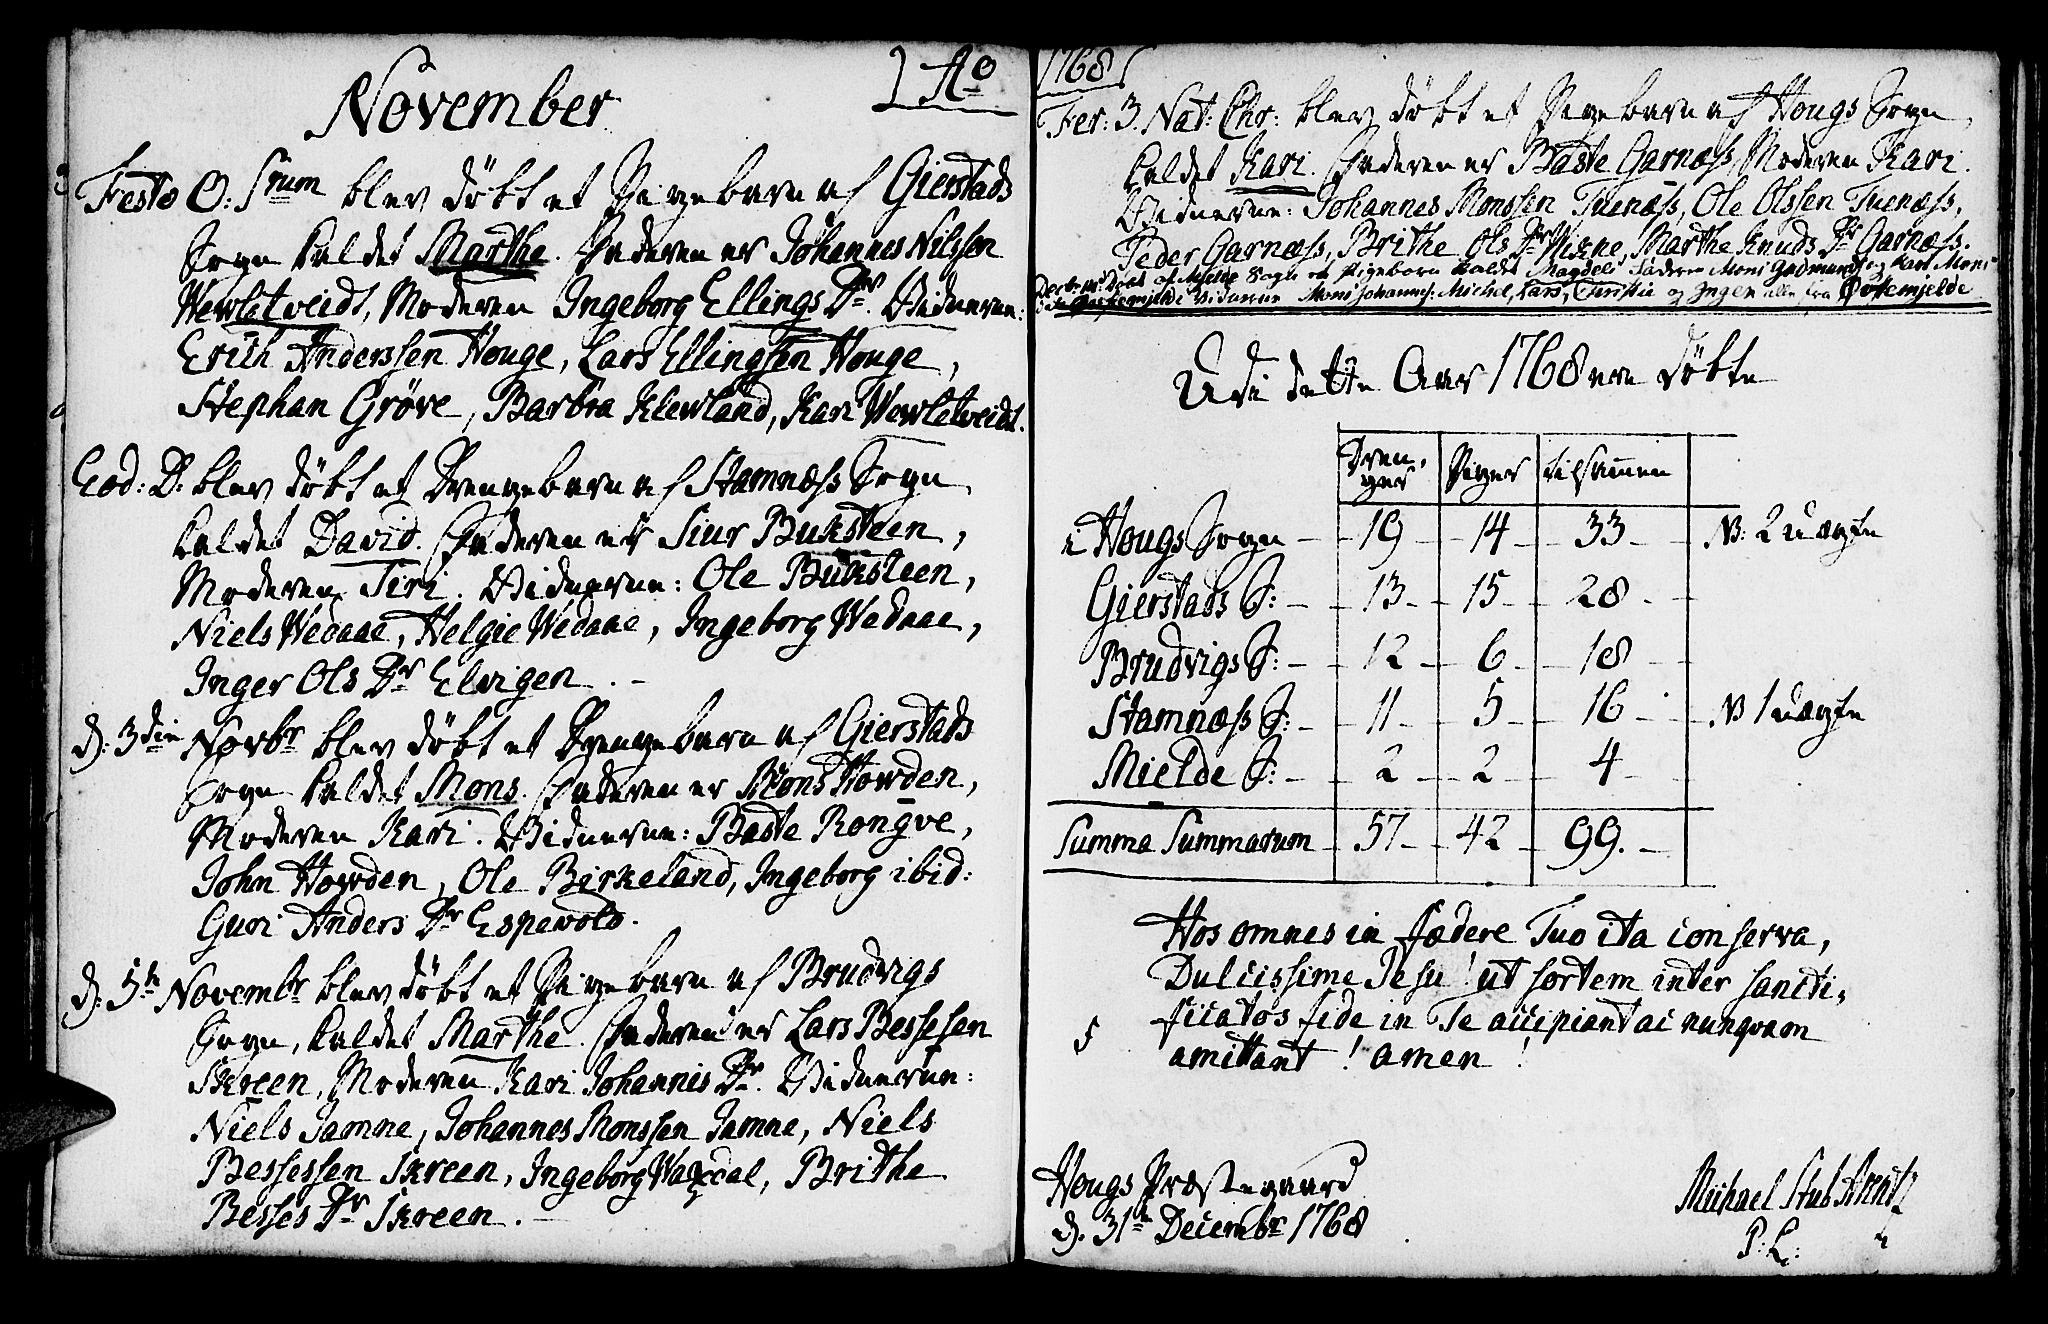 November
Ao
Festo O: Srum blev døbt et Pigebarn af Gierstads
Sogn kaldet Marthe. Faderen er Johannes Nilssen
Wewletveidt, Moderen Ingeborg Ellings Dr. Vidnerne:
Erich Anderssen Houge, Lars Ellingsen Houge,
Stephan Gröve, Barbra Klewland, Kari Wewletveidt.
Eod: D: blev døbt et Drengebarn af Stamnæss Sogn
kaldet David. Faderen er Siur Buksteen,
Moderen Siri. Vidnerne: Ole Buksteen,
Niels Wedaae, Helgie Wedaae, Ingeborg Wedaae,
Inger Ols Dr Elvigen.
d: 3die Novbr blev døbt et Drengebarn af Gierstads
Sogn kaldet Mons. Faderen er Mons Howden,
Moderen Kari. Vidnerne: Baste Rongve,
John Howden, Ole Birkeland, Ingeborg ibid:
Guri Anders Dr Espevold.
d: 5te Novembr blev døbt et Pigebarn af Brudvigs
Sogn, kaldet Marthe. Faderen er Lars Bessesen
Skreen, Moderen Kari Johannis Dr. Vidnerne:
Niels Jamne, Johannes Monssen Jamne, Niels
Bessessen Skreen, Ingeborg Waxdal, Brithe
Besses Dr Skreen.
1768
Fer: 3. Nat: Chr: blev døbt et Pigebarn af Hougs Sogn
kaldet Kari. Faderen er Baste Garnæss, Moderen Kari.
Vidnerne: Johannes Monssen Tuenæss, Ole Olssen Tuenæss,
Peder Garnæss, Brithe Ols Dr Wikne, Marthe Knuds Dr Garnæss.
af Mielde Sogn et Pigebarn kaldet Magdeli Faderen Mons Gudmunds og Kari Mons
Vidnerne Mons Johannes: Michel, Lars, Christie og Ingen alle fra Øvtemjelde
Udi dette Aar 1768 ere døbte
Dren-
ger Piger tilsamen
i Hougs Sogn 19 14 33 N: 2 uægte
Gierstads S: 13 15 28
Brudvigs S: 12 6 18
Stamnæss S: 11 5 16 N 1 uægte
Mielde S: 2 2 4
Summa Summarum 57 42 99.
Hos omnes in fædere Tuo ita conserva,
Dulcissime Jesu! ut sortem inter sancti-
ficatos fide in Te accipiant ac nunqvam
amittant! amen!
Hougs Præstegaard
d. 31te Decembr 1768
Michael Stub Arentz
P: L: